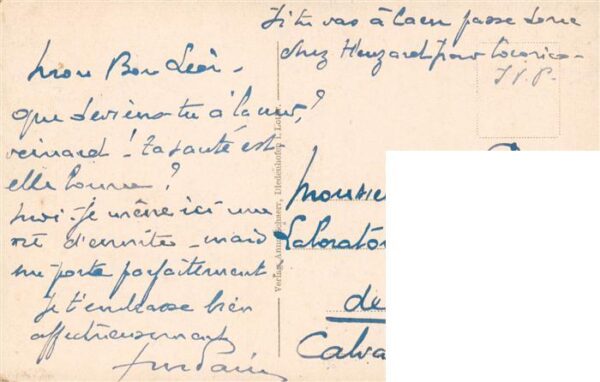 Si tu vas à Caen passe donc
chez Heuzard pour Cocorico -
S.V.P.
Mon Bon Léon -
que deviens-tu à la mer,?
veinard! ta santé est
elle bonne?
Moi - je mène ici une
vie d'ermite - mais
me porte parfaitement
Je t'embrasse bien
affectueusement
Verlag Schnerr, Diedenhofen i. Lothr.
Monsieur
Laborato
de
Calva